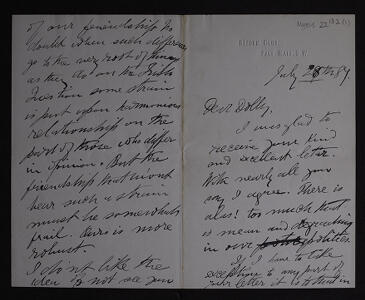 REFORM CLUB,
PALL MALL, S.W.
July 28th 89
Dear Dolly,
I was glad to
receive your kind
and excellent letter.
With nearly all you
say I agree. There is
alas! too much that
is mean and degrading
in our politics.
If I have to take
exception to any part of
your letter it is to that in
of our friendship. No
doubt when such differences
go to the very root of things
as they do on the Irish
Question some strain
is put upon harmonious
relationship on the
part of those who differ
in opinion. But the
friendship that wont
bear such a strain
must be somewhat
frail. Ours is more
robust.
I do not like the
idea of not seeing you